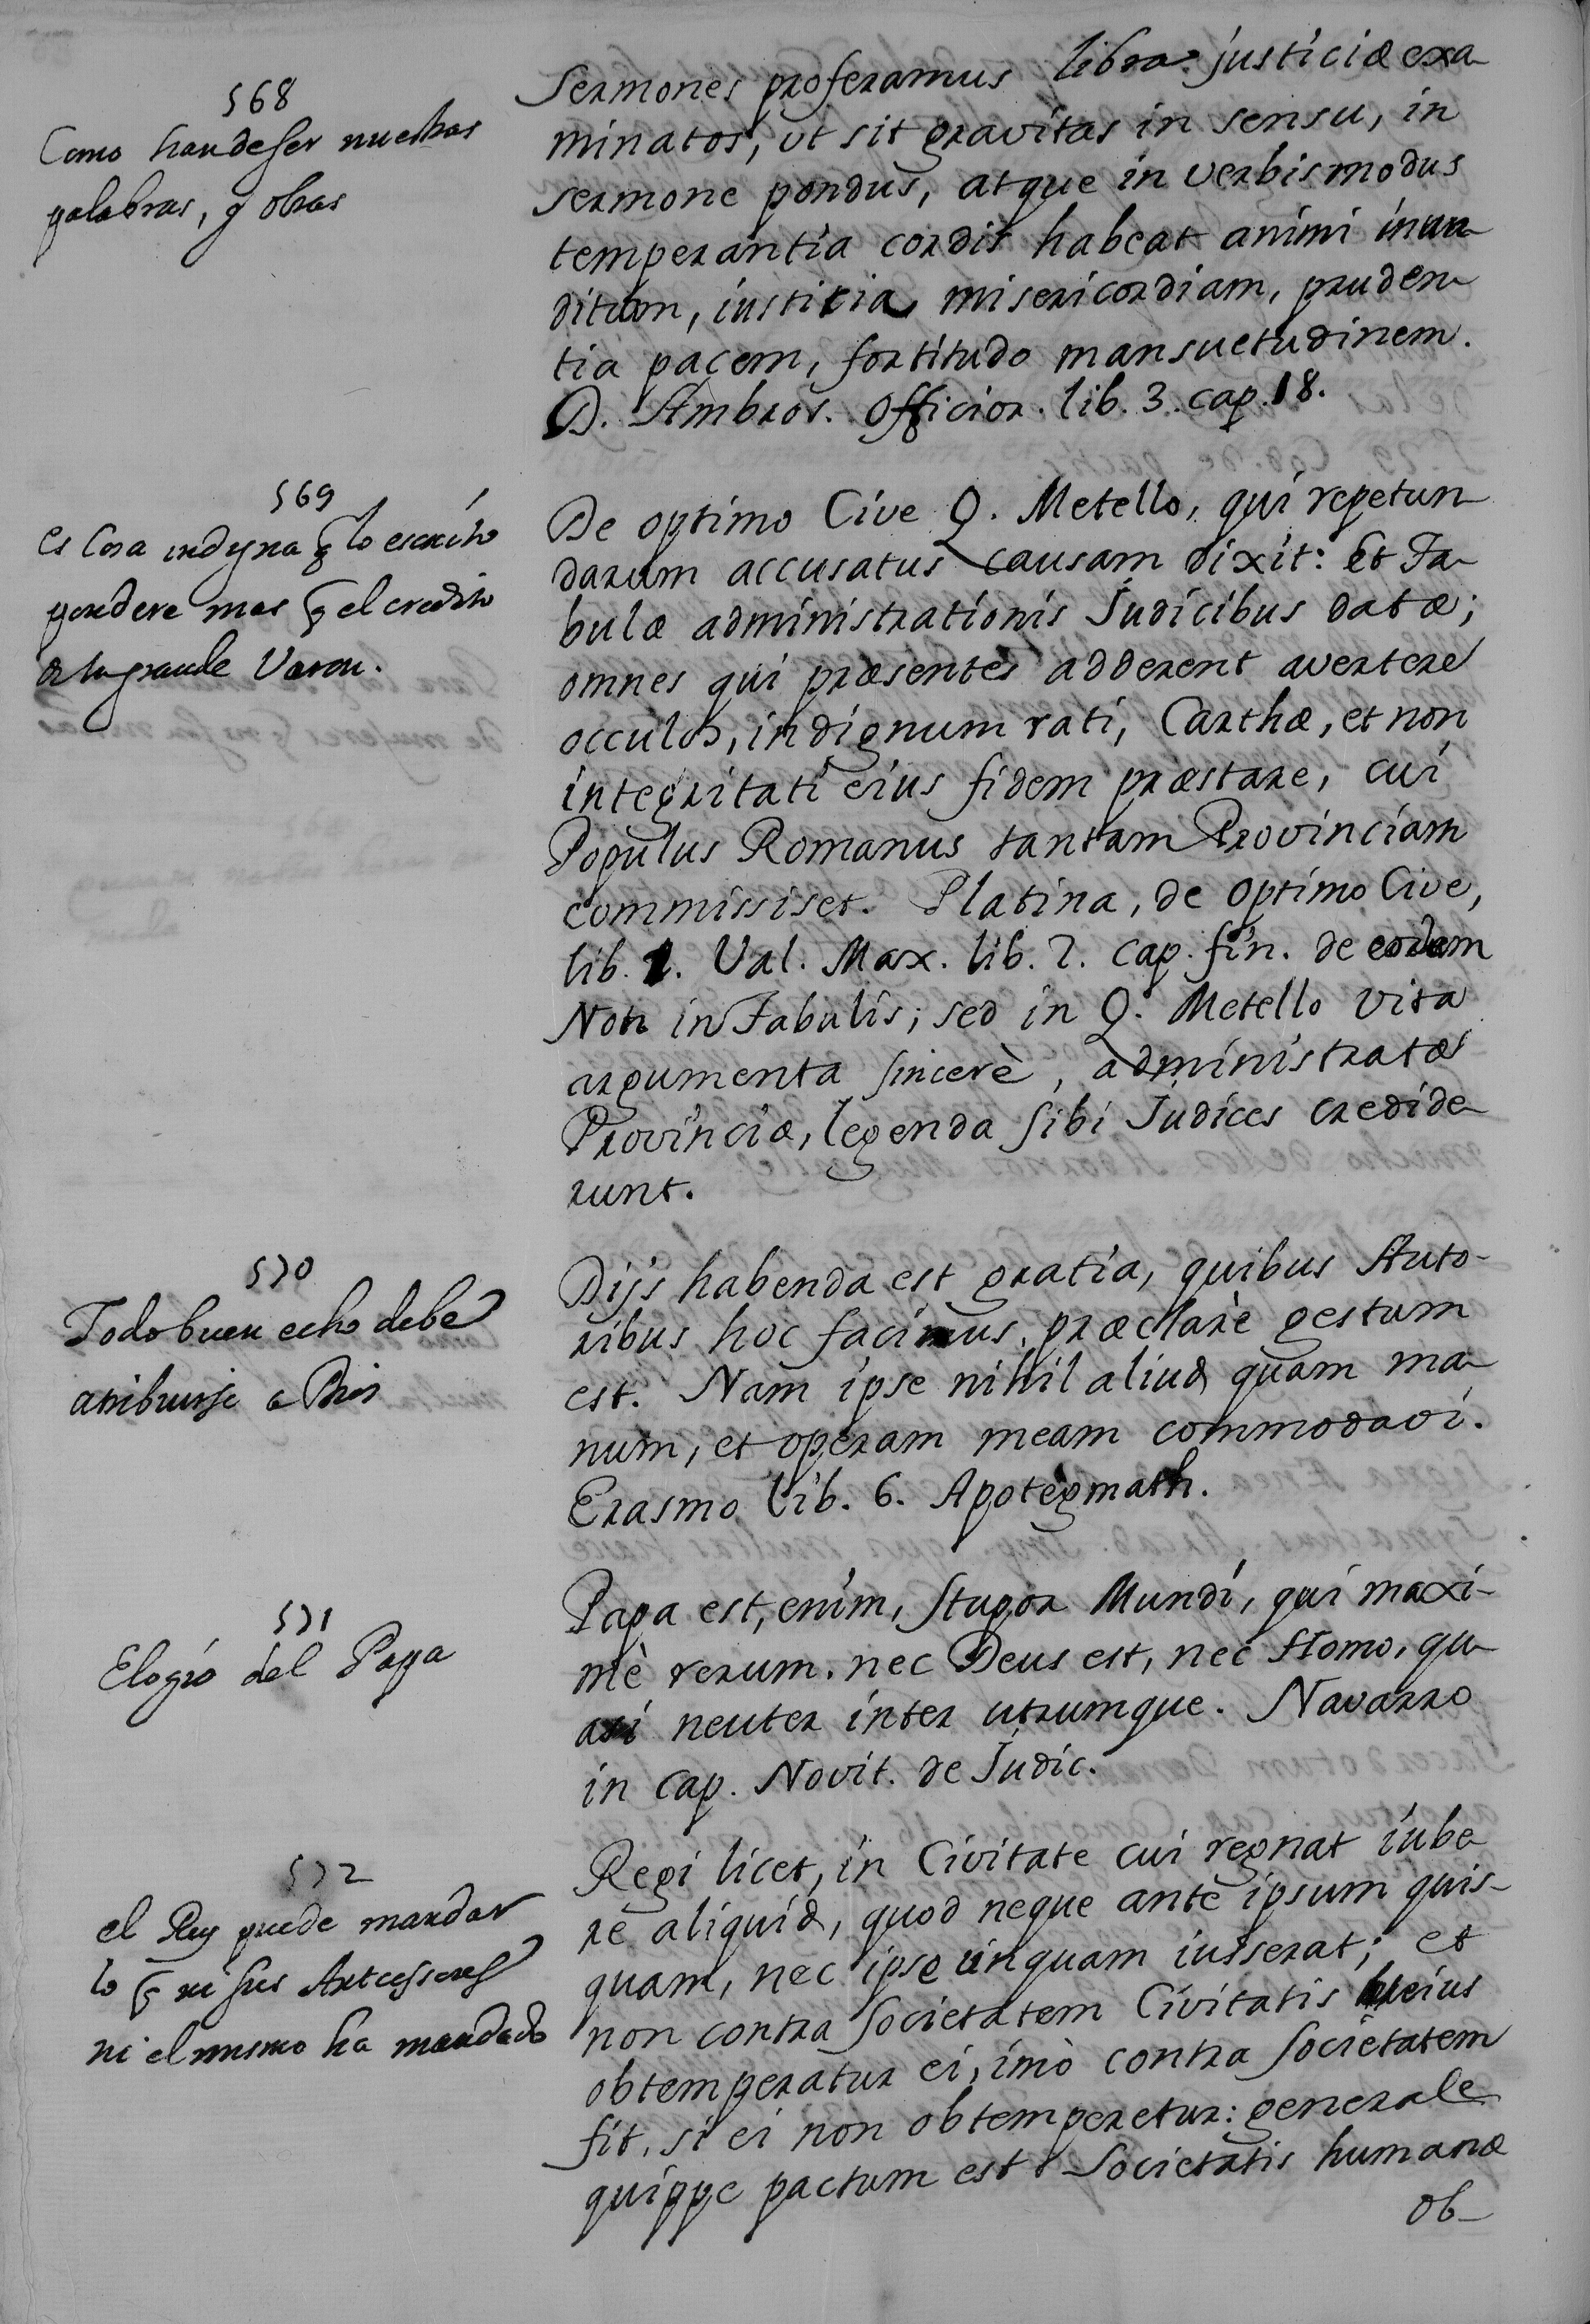 568
Como han de ser nuestras
palabras, y obras
Sermones proferamus libra justiciæ exa-
minatos, ut sit gravitas in sensu, in
sermone pondus, atque in verbis modus
temperantia cordis habeat animi
ditiam, iustitia misericordiam, pruden-
tia pacem, fortitudo mansuetudinem.
D. Ambros. Officior. lib. 3. cap. 18.
569
es Cosa indigna q lo escrito
pondere mas q el credito
grande Varon.
De optimo Cive Q. Metello, qui repetun-
darum accusatus causam dixit: Et Ta-
bulæ administrationis Judicibus datæ;
omnes qui præsentes adderent avertere
occulos, indignum rati, Carthæ, et non
integritati eius fidem præstare, cui
Populus Romanus tantam Provinciam
commissiset. Platina, de optimo Cive,
lib. 1. Val. Max. lib. 2. cap. fin. de eodem
Non in Tabulis; sed in Q. Metello vita
argumenta sincerè, administratæ
Provinciæ, legenda sibi Judices credide-
runt.
570
Todo buen echo debe
atribuirse a Dios
Dijs habenda est gratia, quibus Auto-
ribus hoc facinus, præclarè gestum
est. Nam ipse nihil aliud quam ma-
num, et operam meam commodavi.
Erasmo lib. 6. Apotegmath.
571
Elogio del Papa
Papa est, enim, stupor Mundi, qui maxi-
mè rerum. nec Deus est, nec Homo, qu-
asi neuter inter utrumque. Navarro
in cap. Novit. de Judic.
572
el Rey puede mandar
lo q ni sus Antecessores
ni el mismo ha mandado
Regi licet, in Civitate cui regnat iube-
re aliquid, quod neque ante ipsum quis-
quam, nec ipse unquam iusserat; et
non contra societatem Civitatis eius
obtemperatur ei, imò contra societatem
fit, si ei non obtemperetur: generale
quippe pactum est Societatis humanæ
ob-